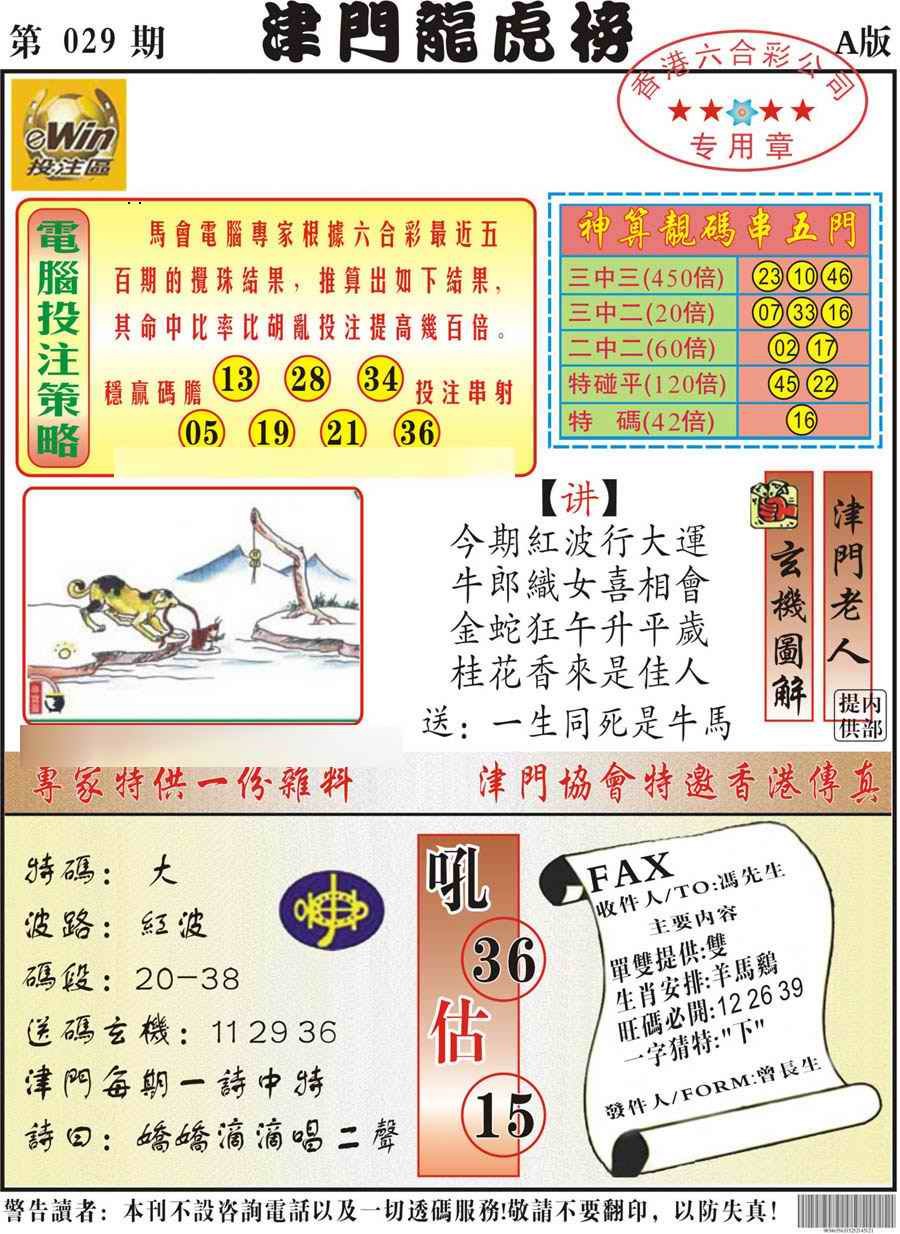 第 029 期
津門龍虎榜
A版
香港六合彩公司
专用章
eWin
投注區
電腦投注策略
馬會電腦專家根據六合彩最近五
百期的攪珠結果，推算出如下結果，
其命中比率比胡亂投注提高幾百倍。
穩贏碼膽 13 28 34 投注串射
05 19 21 36
神算靚碼串五門
三中三(450倍) 23 10 46
三中二(20倍) 07 33 16
二中二(60倍) 02 17
特碰平(120倍) 45 22
特 碼(42倍) 16
【讲】
今期紅波行大運
牛郎織女喜相會
金蛇狂午升平歲
桂花香來是佳人
送：一生同死是牛馬
玄機圖解
津門老人
提供
内部
專家特供一份雜料
津門協會特邀香港傳真
特碼：大
波路：紅波
碼段：20-38
送碼玄機：11 29 36
津門每期一詩中特
詩曰：嬌嬌滴滴唱二聲
吼
36
估
15
FAX
收件人/TO:馮先生
主要内容
單雙提供:雙
生肖安排:羊馬鷄
旺碼必開:12 26 39
一字猜特:"下"
發件人/FORM:曾長生
警告讀者：本刊不設咨詢電話以及一切透碼服務!敬請不要翻印，以防失真!